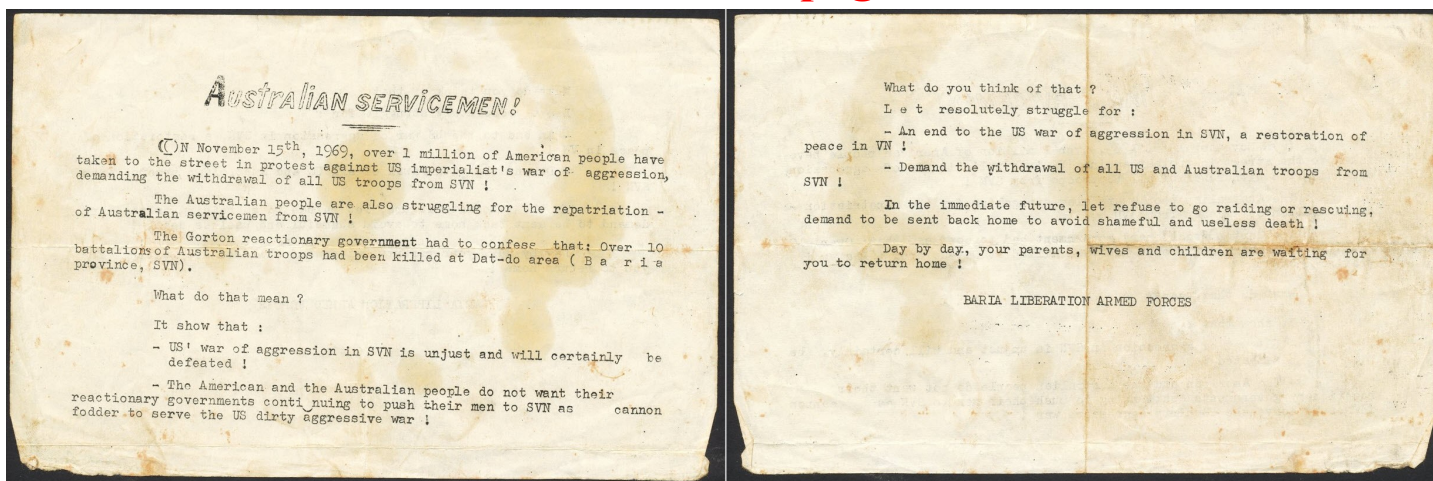 AUSTRALIAN SERVICEMEN!
ON November 15th, 1969, over 1 million of American people have
taken to the street in protest against US imperialist's war of aggression,
demanding the withdrawal of all US troops from SVN !
The Australian people are also struggling for the repatriation -
of Australian servicemen from SVN !
The Gorton reactionary government had to confess that: Over 10
battalions of Australian troops had been killed at Dat-do area ( B a r i a
province, SVN).
What do that mean ?
It show that :
- US' war of aggression in SVN is unjust and will certainly be
defeated !
- The American and the Australian people do not want their
reactionary governments conti nuing to push their men to SVN as cannon
fodder to serve the US dirty aggressive war !
What do you think of that ?
L e t resolutely struggle for :
- An end to the US war of aggression in SVN, a restoration of
peace in VN !
- Demand the withdrawal of all US and Australian troops from
SVN !
In the immediate future, let refuse to go raiding or rescuing,
demand to be sent back home to avoid shameful and useless death !
Day by day, your parents, wives and children are waiting for
you to return home !
BARIA LIBERATION ARMED FORCES